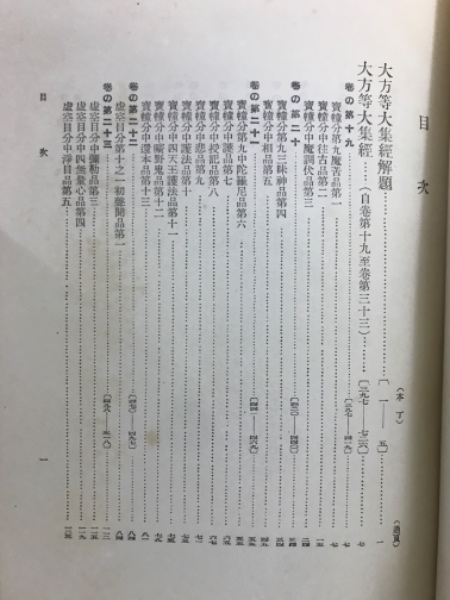 目次
(本丁) (通頁)
大方等大集經解題 〔一——五〕 一
大方等大集經 (自卷第十九至卷第三十三) 〔三九七 七二六〕 七
卷の第十九 〔三九七——四一九〕 七
寶幢分第九魔苦品第一 七
寶幢分中往古品第二 一五
寶幢分中魔調伏品第三 二四
卷の第二十 〔四二〇——四四〇〕
寶幢分第九三昧神品第四
寶幢分中相品第五
卷の第二十一 〔四四一——四六九〕
寶幢分第九中陀羅尼品第六
寶幢分中護品第七
寶幢分中授記品第八
寶幢分中悲品第九 七一
寶幢分中護法品第十
寶幢分中四天王護法品第十一
寶幢分中曠野鬼品第十二
寶幢分中還本品第十三 八一
卷の第二十二 〔四七〇——四九七〕 八四
虛空目分第十之一初聲聞品第一 八四
卷の第二十三 〔四九八——五一八〕
虛空目分中彌勒品第三
虛空目分中四無量心品第四
虛空目分中淨目品第五
目次 一